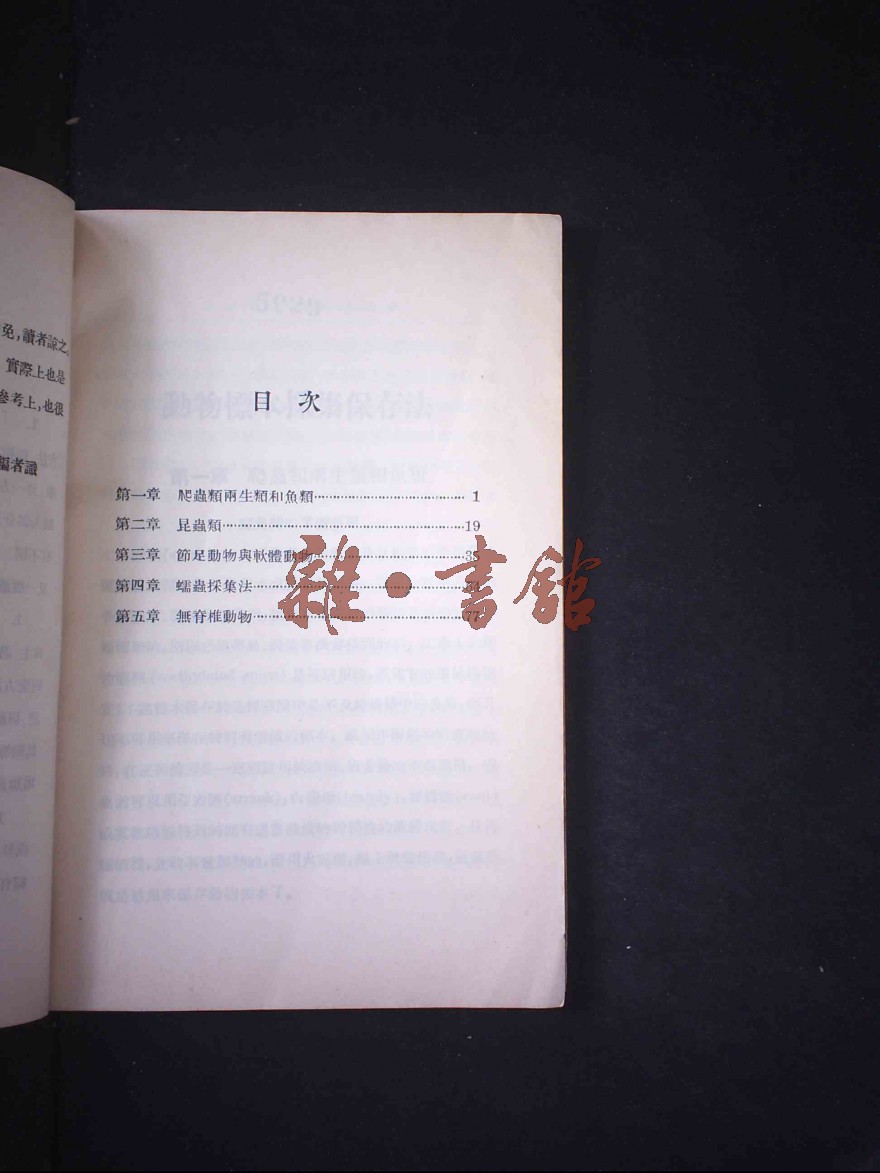 免,讀者諒之。
實際上也是
參考上,也很
編者識
目次
第一章 爬蟲類兩生類和魚類 1
第二章 昆蟲類 19
第三章 節足動物與軟體動物 35
第四章 蠕蟲採集法
第五章 無脊椎動物 77
雜·書館